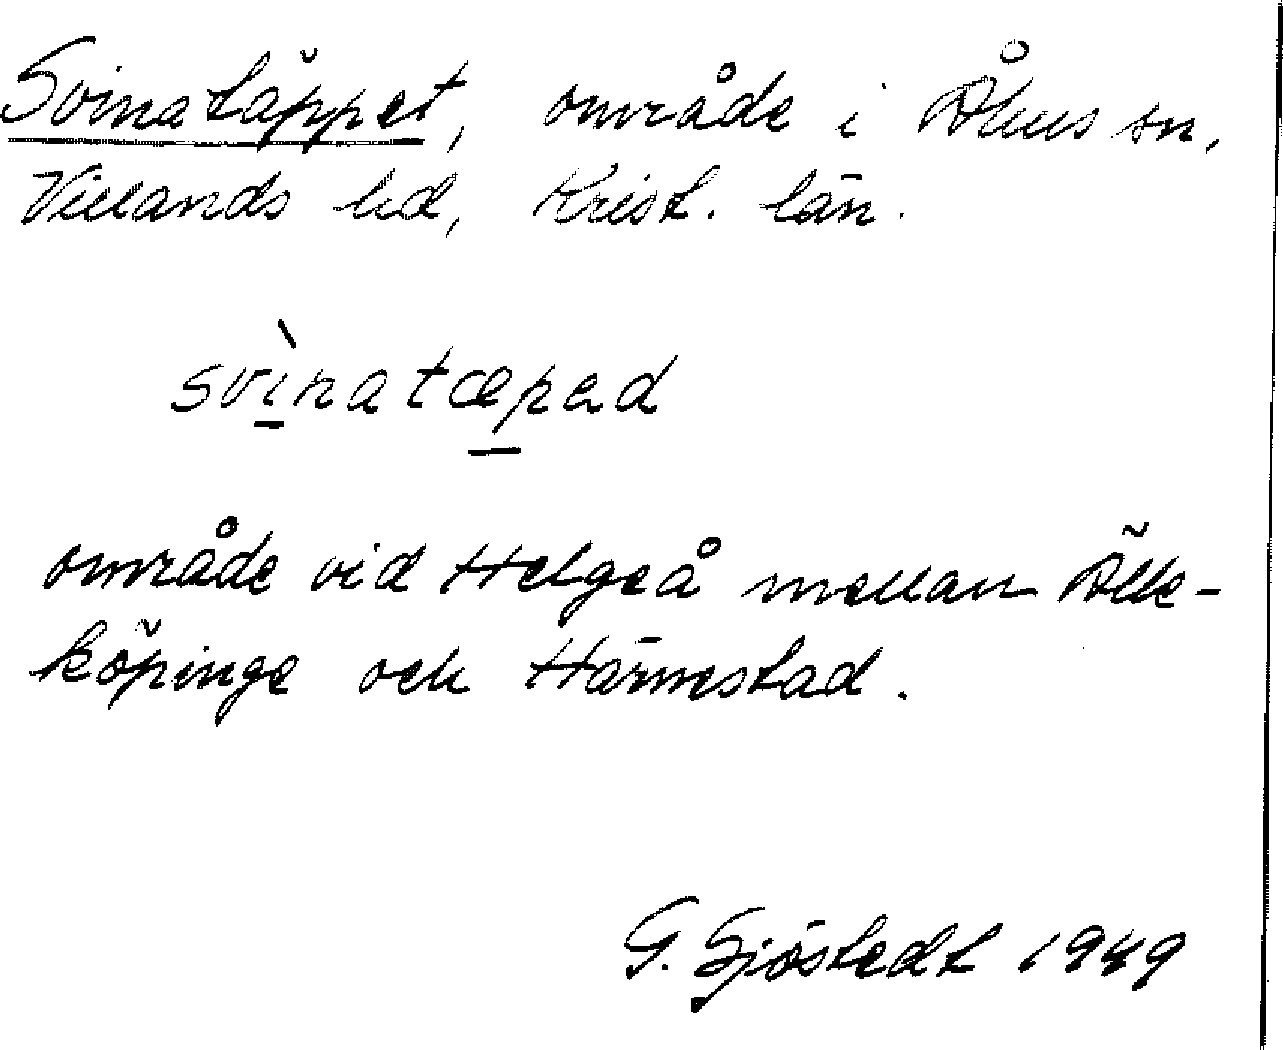 Svinatäppet, område i Åhus sn,
Villands hd, Krist. län.
svìnatæped
område vid Helgeå mellan Ölle-
köpinge och Härnestad.
G. Sjöstedt 1949